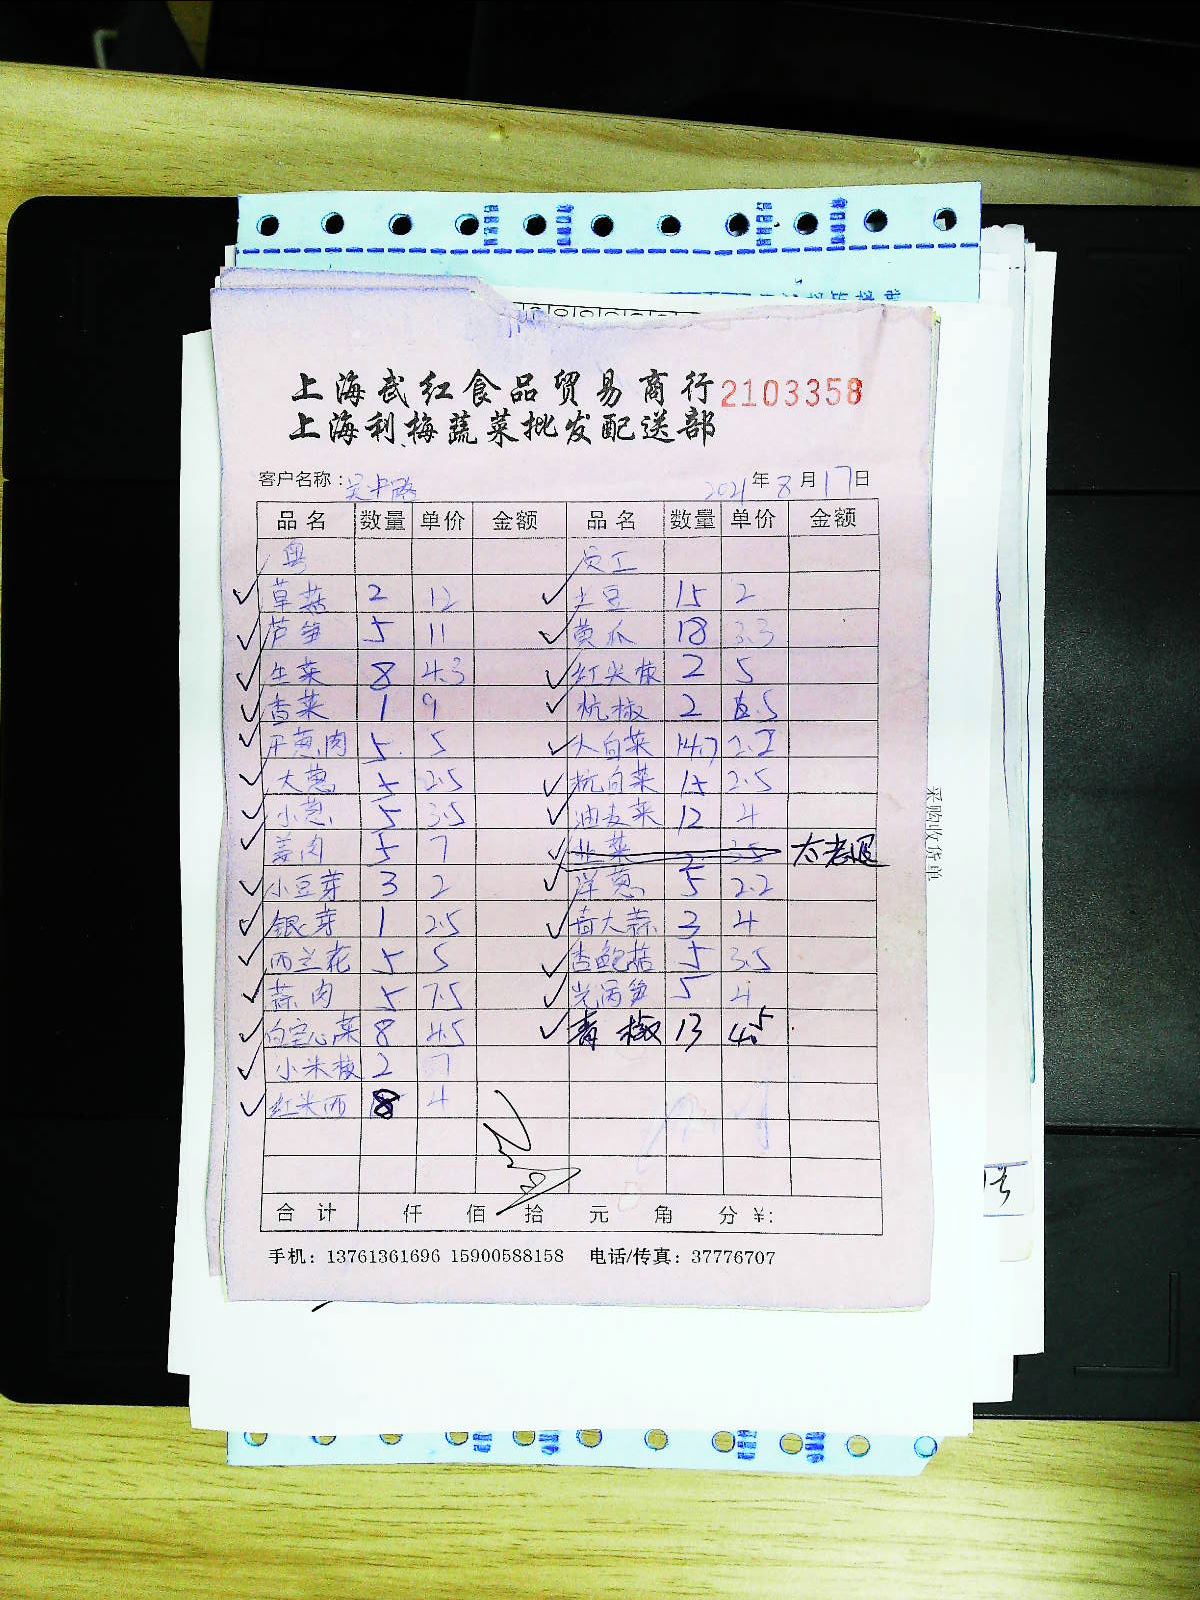 上海武红食品贸易商行 2103358
上海利梅蔬菜批发配送部
客户名称：吴中路 2021年8月17日
品名 数量 单价 金额 品名 数量 单价 金额
粤 员工
草菇 2 12 土豆 15 2
芦笋 5 11 黄瓜 18 3.3
生菜 8 4.3 红尖椒 2 5
香菜 1 9 杭椒 2 5.5
洋葱肉 5 5 大白菜 14.7 2.2
大葱 5 2.5 杭白菜 15 2.5
小葱 5 3.5 油麦菜 12 4
姜肉 5 7 韭菜 2 3.5 太老退
小豆芽 3 2 洋葱 5 2.2
银芽 1 2.5 青大蒜 3 4
西兰花 5 5 杏鲍菇 5 3.5
蒜肉 5 7.5 光莴笋 5 4
白空心菜 8 4.5 青椒 13 4.5
小米椒 2 7
红米西 8 4
合计 仟 佰 拾 元 角 分 ¥：
手机：13761361696 15900588158 电话/传真：37776707
采购收货单